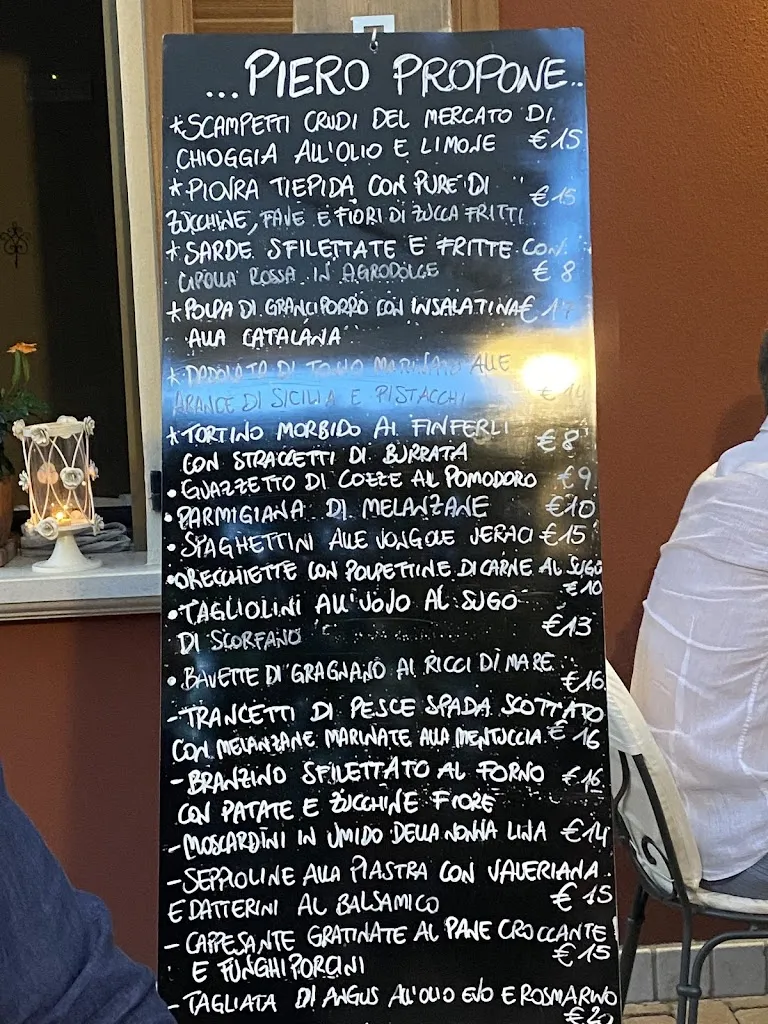 ...PIERO PROPONE...
*SCAMPETTI CRUDI DEL MERCATO DI
CHIOGGIA ALL'OLIO E LIMONE €15
*PIOVRA TIEPIDA CON PURE' DI
ZUCCHINE, FAVE E FIORI DI ZUCCA FRITTI €15
*SARDE SFILETTATE E FRITTE CON
CIPOLLA ROSSA IN AGRODOLCE €8
*POLPA DI GRANCIPORRO CON INSALATINA €
ALLA CATALANA
* DI TONNO MARINATO ALLE
ARANCE DI SICILIA E PISTACCHI €14
*TORTINO MORBIDO AI FINFERLI
CON STRACCETTI DI BURRATA €8
•GUAZZETTO DI COZZE AL POMODORO €9
•PARMIGIANA DI MELANZANE €10
•SPAGHETTINI ALLE VONGOLE VERACI €15
•ORECCHIETTE CON POLPETTINE DI CARNE AL SUGO
€10
•TAGLIOLINI ALL'UOVO AL SUGO
DI SCORFANO €13
•BAVETTE DI GRAGNANO AI RICCI DI MARE
€16
-TRANCETTI DI PESCE SPADA SCOTTATO
CON MELANZANE MARINATE ALLA MENTUCCIA €16
-BRANZINO SFILETTATO AL FORNO €16
CON PATATE E ZUCCHINE FIORE
-MOSCARDINI IN UMIDO DELLA NONNA LINA €14
-SEPPIOLINE ALLA PIASTRA CON VALERIANA
E DATTERINI AL BALSAMICO €15
-CAPPESANTE GRATINATE AL PANE CROCCANTE
E FUNGHI PORCINI €15
-TAGLIATA DI ANGUS ALL'OLIO EVO E ROSMARINO
€20